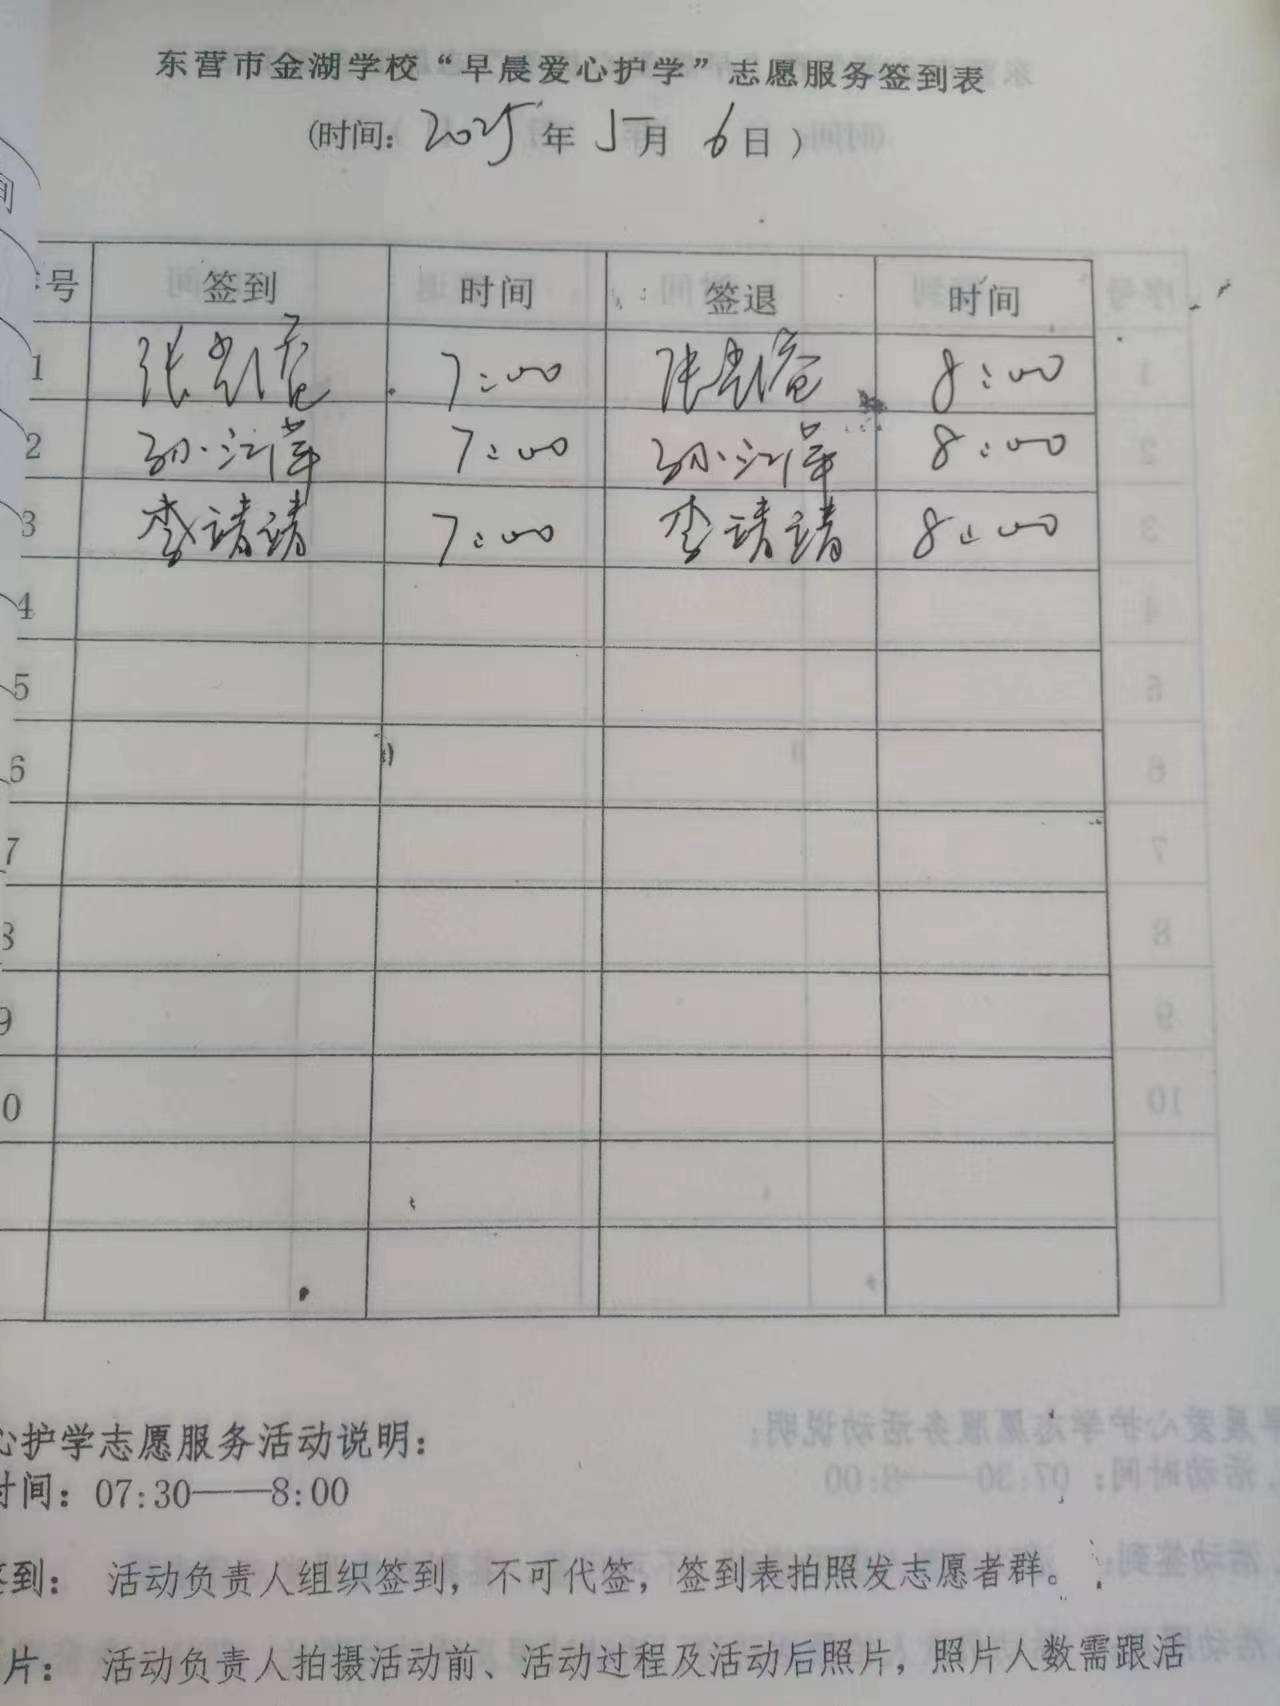 东营市金湖学校“早晨爱心护学”志愿服务签到表
(时间: 2025 年 5 月 6 日 )
号 签到 时间 签退 时间
1 张 7:00 张 8:00
2 孙江萍 7:00 孙江萍 8:00
3 李靖靖 7:00 李靖靖 8:00
4
5
6
7
8
9
0
心护学志愿服务活动说明:
时间: 07:30——8:00
签到: 活动负责人组织签到, 不可代签, 签到表拍照发志愿者群。
片: 活动负责人拍摄活动前、活动过程及活动后照片, 照片人数需跟活